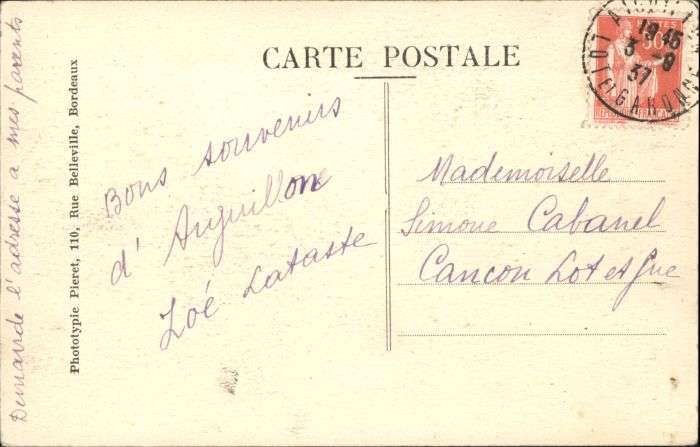 CARTE POSTALE
Bons souvenirs
d'Aiguillon
Zoé Lataste
Mademoiselle
Simone Cabanel
Cancon Lot et Gne
Demande l'adresse a mes parents
Phototypie Pieret, 110, Rue Belleville, Bordeaux
19 45
3 -9
37
LOT-ET-GARONNE
POSTES